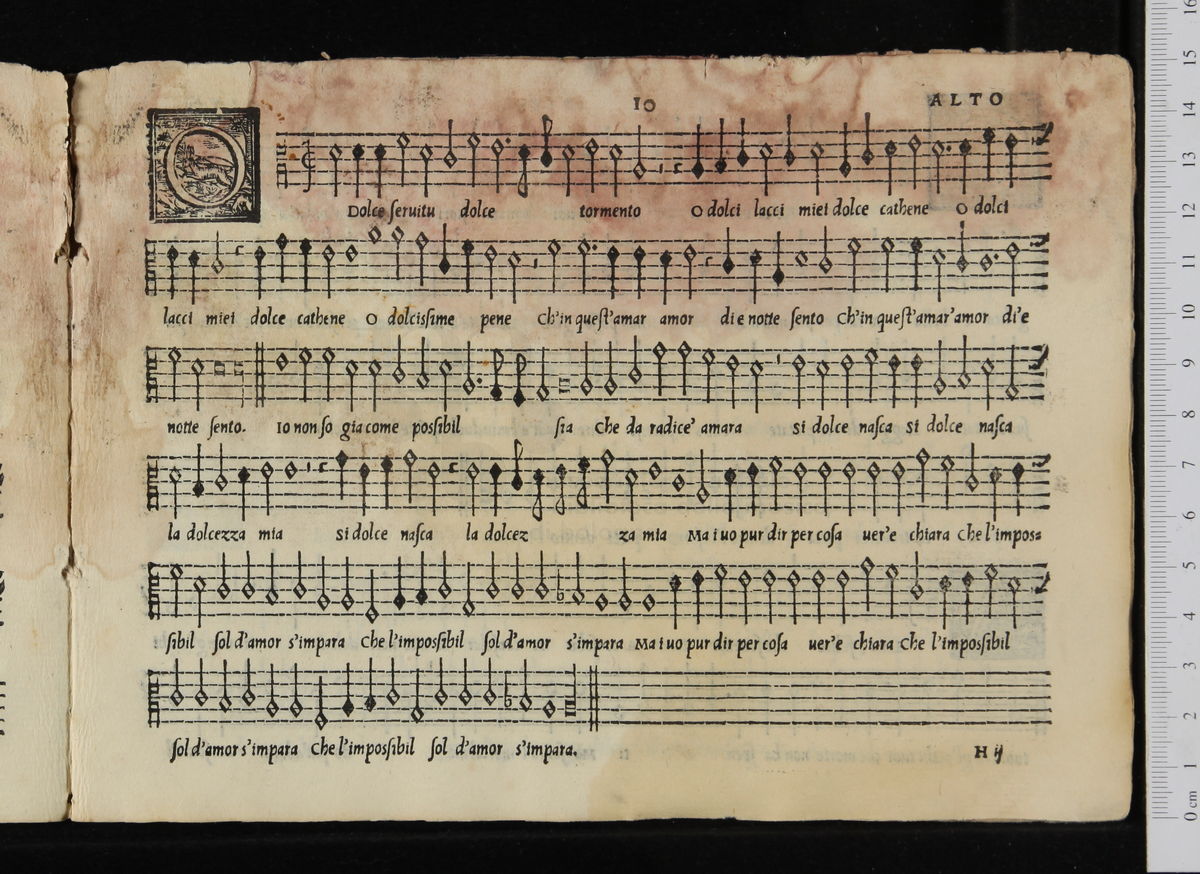 10
ALTO
O Dolce seruitu dolce tormento O dolci lacci miei dolce cathene O dolci
lacci miei dolce cathene O dolcissime pene Ch'in quest'amar amor di e notte sento Ch'in quest'amar'amor di'e
notte sento. Io non so gia come possibil sia Che da radice' amara Si dolce nasca Si dolce nasca
la dolcezza mia Si dolce nasca la dolcez za mia Ma i uo pur dir per cosa uer'e chiara Che l'impos=
sibil sol d'amor s'impara Che l'impossibil sol d'amor s'impara Ma i uo pur dir per cosa uer'e chiara Che l'impossibil
sol d'amor s'impara Che l'impossibil sol d'amor s'impara.
H ij
0 cm 1 2 3 4 5 6 7 8 9 10 11 12 13 14 15 16